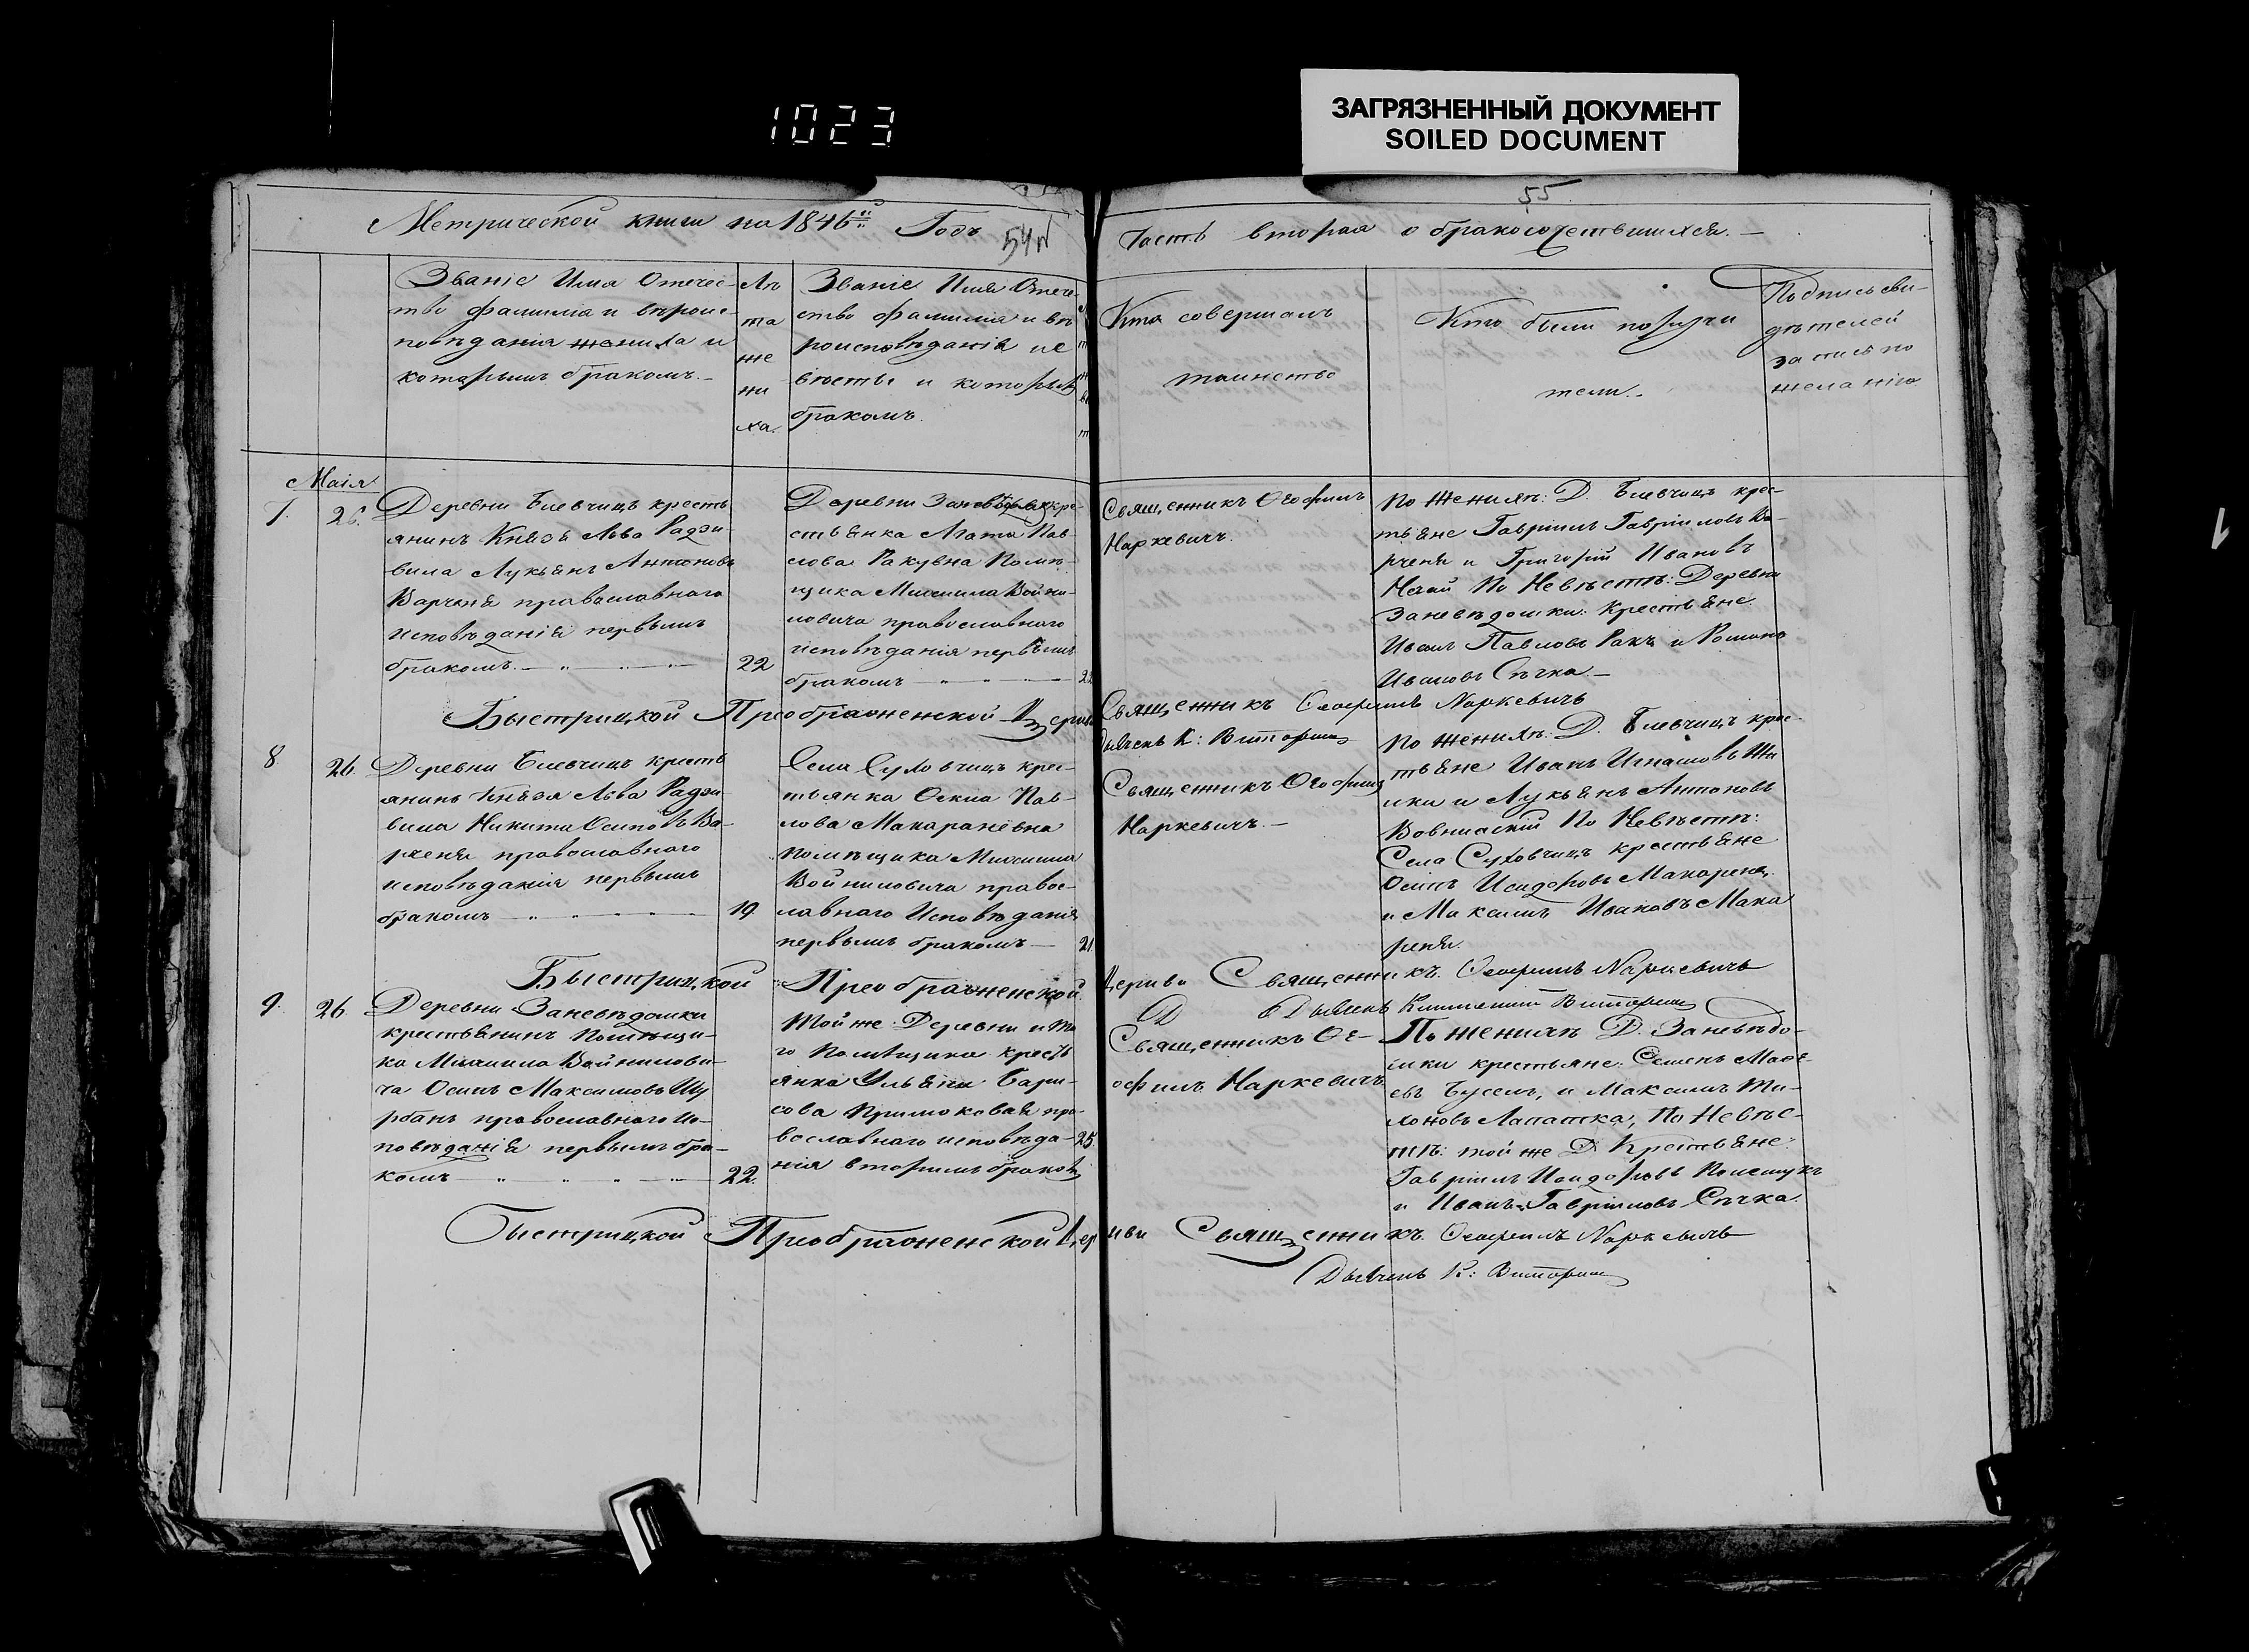 1023
ЗАГРЯЗНЕННЫЙ ДОКУМЕНТ
SOILED DOCUMENT
Метрической книги на 1846й Годъ
54
55
Часть вторая о бракосочетавшихся.
Званіе Имя Отечес-
тво фамилія и вѣроис-
повѣданія жениха и
которымъ бракомъ.
Лѣ
та
же
ни
ха.
Званіе Имя Отече-
ство фамилія и вѣ
роисповѣданія не
вѣсты и которым
бракомъ.
Кто совершалъ
таинство
Кто были поручи
тели.
Подпись сви-
дѣтелей
запись по
желанію
Маія
7. 26.
Деревни Блевчицъ кресть
янинъ Князя Льва Радзи-
вила Лукьянъ Антоновъ
Варченя православнаго
исповѣданія первымъ
бракомъ.
22
Деревни кре-
стьянка Агата Пав-
лова Ракувна Помѣ-
щика Михаила Война-
ловича православнаго
исповѣданія первымъ
бракомъ
Священникъ Ѳеофилъ
Наркевичъ.
По Женихѣ: Д. Блевчицъ крес-
тьяне Гавріилъ Гавріиловъ Ва-
рченя и Григорій Ивановъ
По Невѣстѣ: Деревни
Заневѣдошки: Крестьяне
Иванъ Павловъ Ракъ и Романъ
Ивановъ Сѣчка.
Быстрицкой Преображенской Церкви
Священникъ Ѳеофилъ Наркевичъ
К:
8 26.
Деревни Блевчицъ кресть
янинъ Князя Льва Радзи-
вила Никита Осиповъ Ва-
рченя православнаго
исповѣданія первымъ
бракомъ
19
Села Суховчицъ крес-
тьянка Пав-
лова Макараневна
помѣщика Михаила
Войниловича правос-
лавнаго Исповѣданія
первымъ бракомъ
21
Священникъ Ѳеофилъ
Наркевичъ.
По Женихѣ: Д. Блевчицъ крес-
тьяне Иванъ
и Лукьянъ Антоновъ
По Невѣстѣ:
Села Суховчицъ крестьяне
Осипъ Исидоровъ Макареня
и Максимъ Ивановъ Мака
реня.
Быстрицкой Преображенской
Церкви Священникъ Ѳеофилъ Наркевичъ
9. 26
Деревни Заневѣдошки
крестьянинъ Помѣщи-
ка Михаила Войнилови-
ча Осипъ Максимовъ Шу
рбанъ православнаго ис-
повѣданія первымъ бра-
комъ
22.
Той же Деревни и то
го Помѣщика кресть
янка Ульяна Бари-
сова Примаковая пра-
вославнаго исповѣда-
нія вторымъ бракомъ
25.
Священникъ Ѳе-
офилъ Наркевичъ
По женихѣ Д. Заневѣдо-
шки крестьяне: Семенъ Матѳ-
евъ Бусел, и Максимъ Ти-
хоновъ Лапатка, По Невѣс-
тѣ: той же Д. Крестьяне:
Гавріилъ Исидоровъ
и Иванъ Гавріиловъ Сѣчка.
Быстрицкой Преображенской Церкви Священникъ Ѳеофилъ Наркевичъ
К: